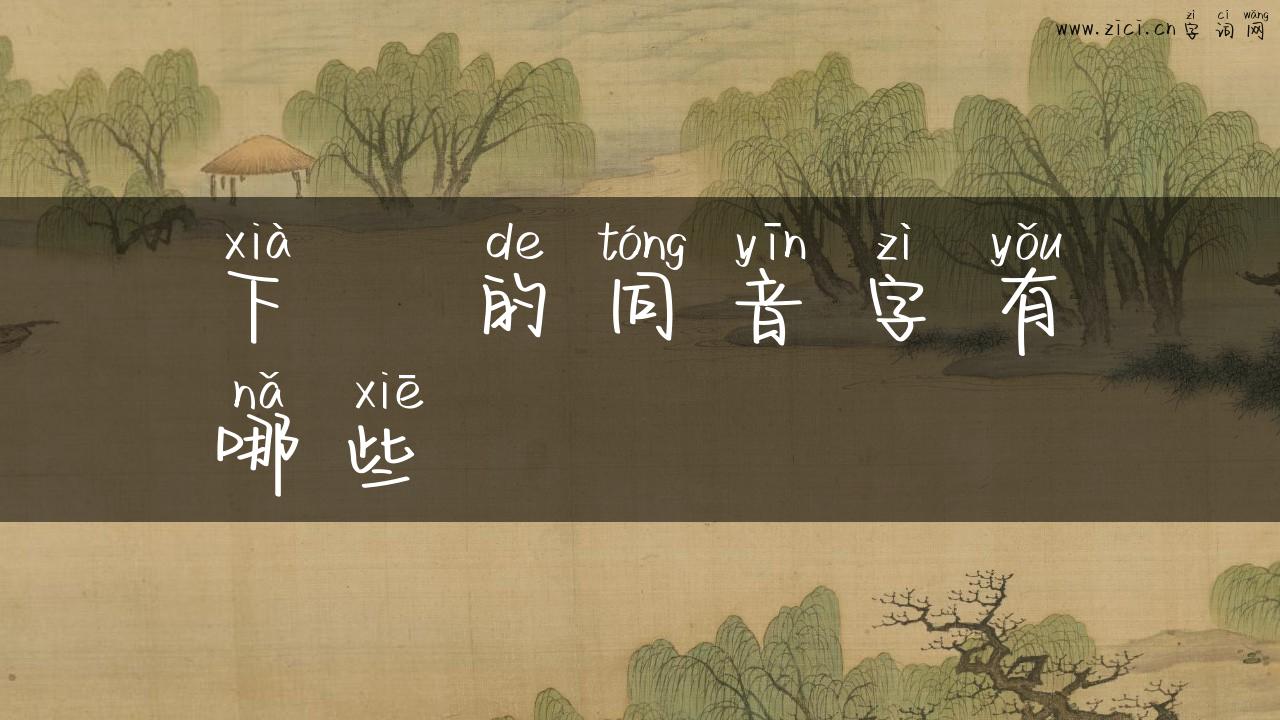 zì cí wǎng
www.zici.cn字词网
xià de tóng yīn zì yǒu
下 的同音字有
nǎ xiē
哪些